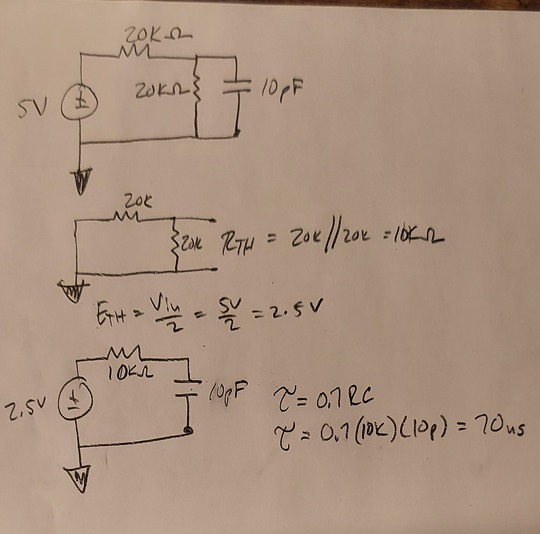 20KΩ
5V
20KΩ
10pF
20K
20K
RTH = 20K//20K = 10KΩ
ETH = Vin/2 = 5V/2 = 2.5V
10KΩ
2.5V
10pF
τ = 0.7RC
τ = 0.7(10K)(10p) = 70ns